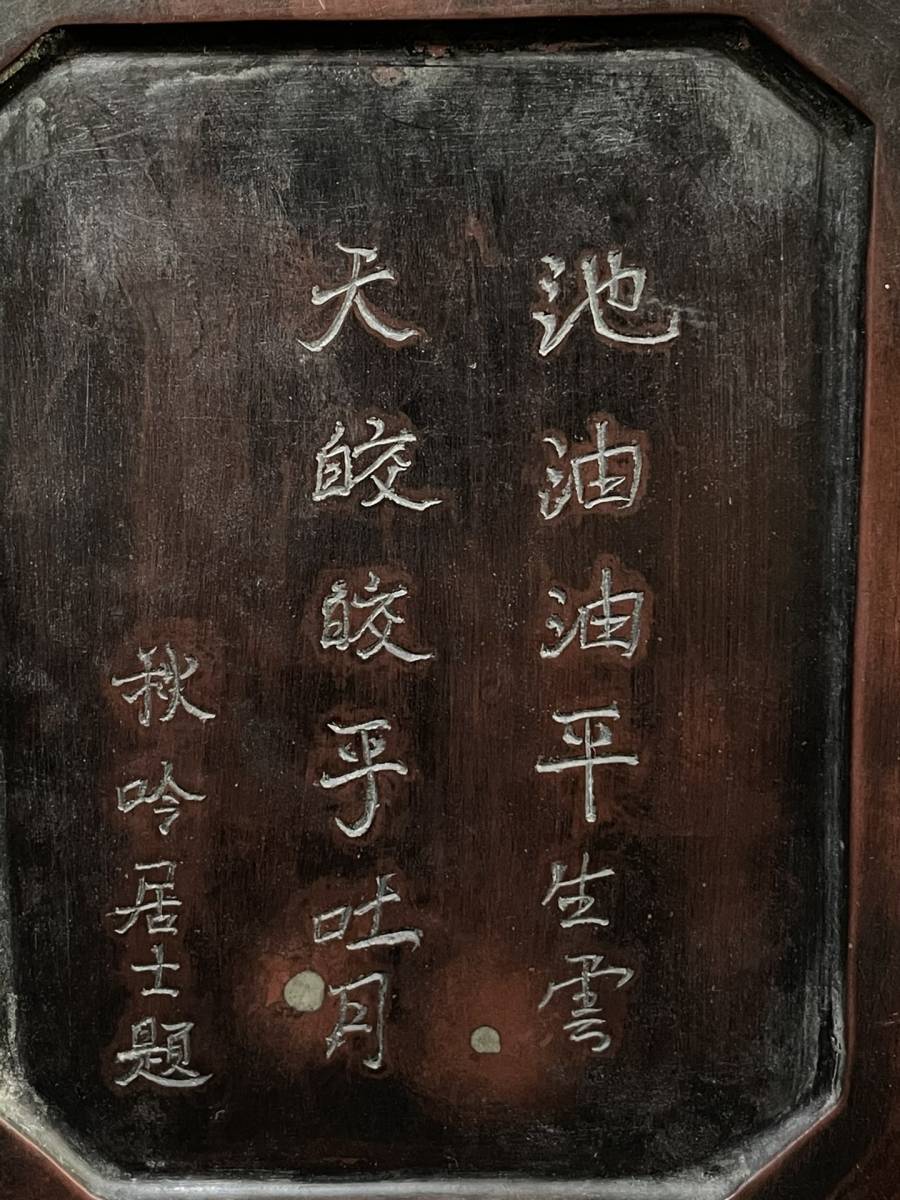 池油油平生雲
天皎皎乎吐月
秋吟居士題